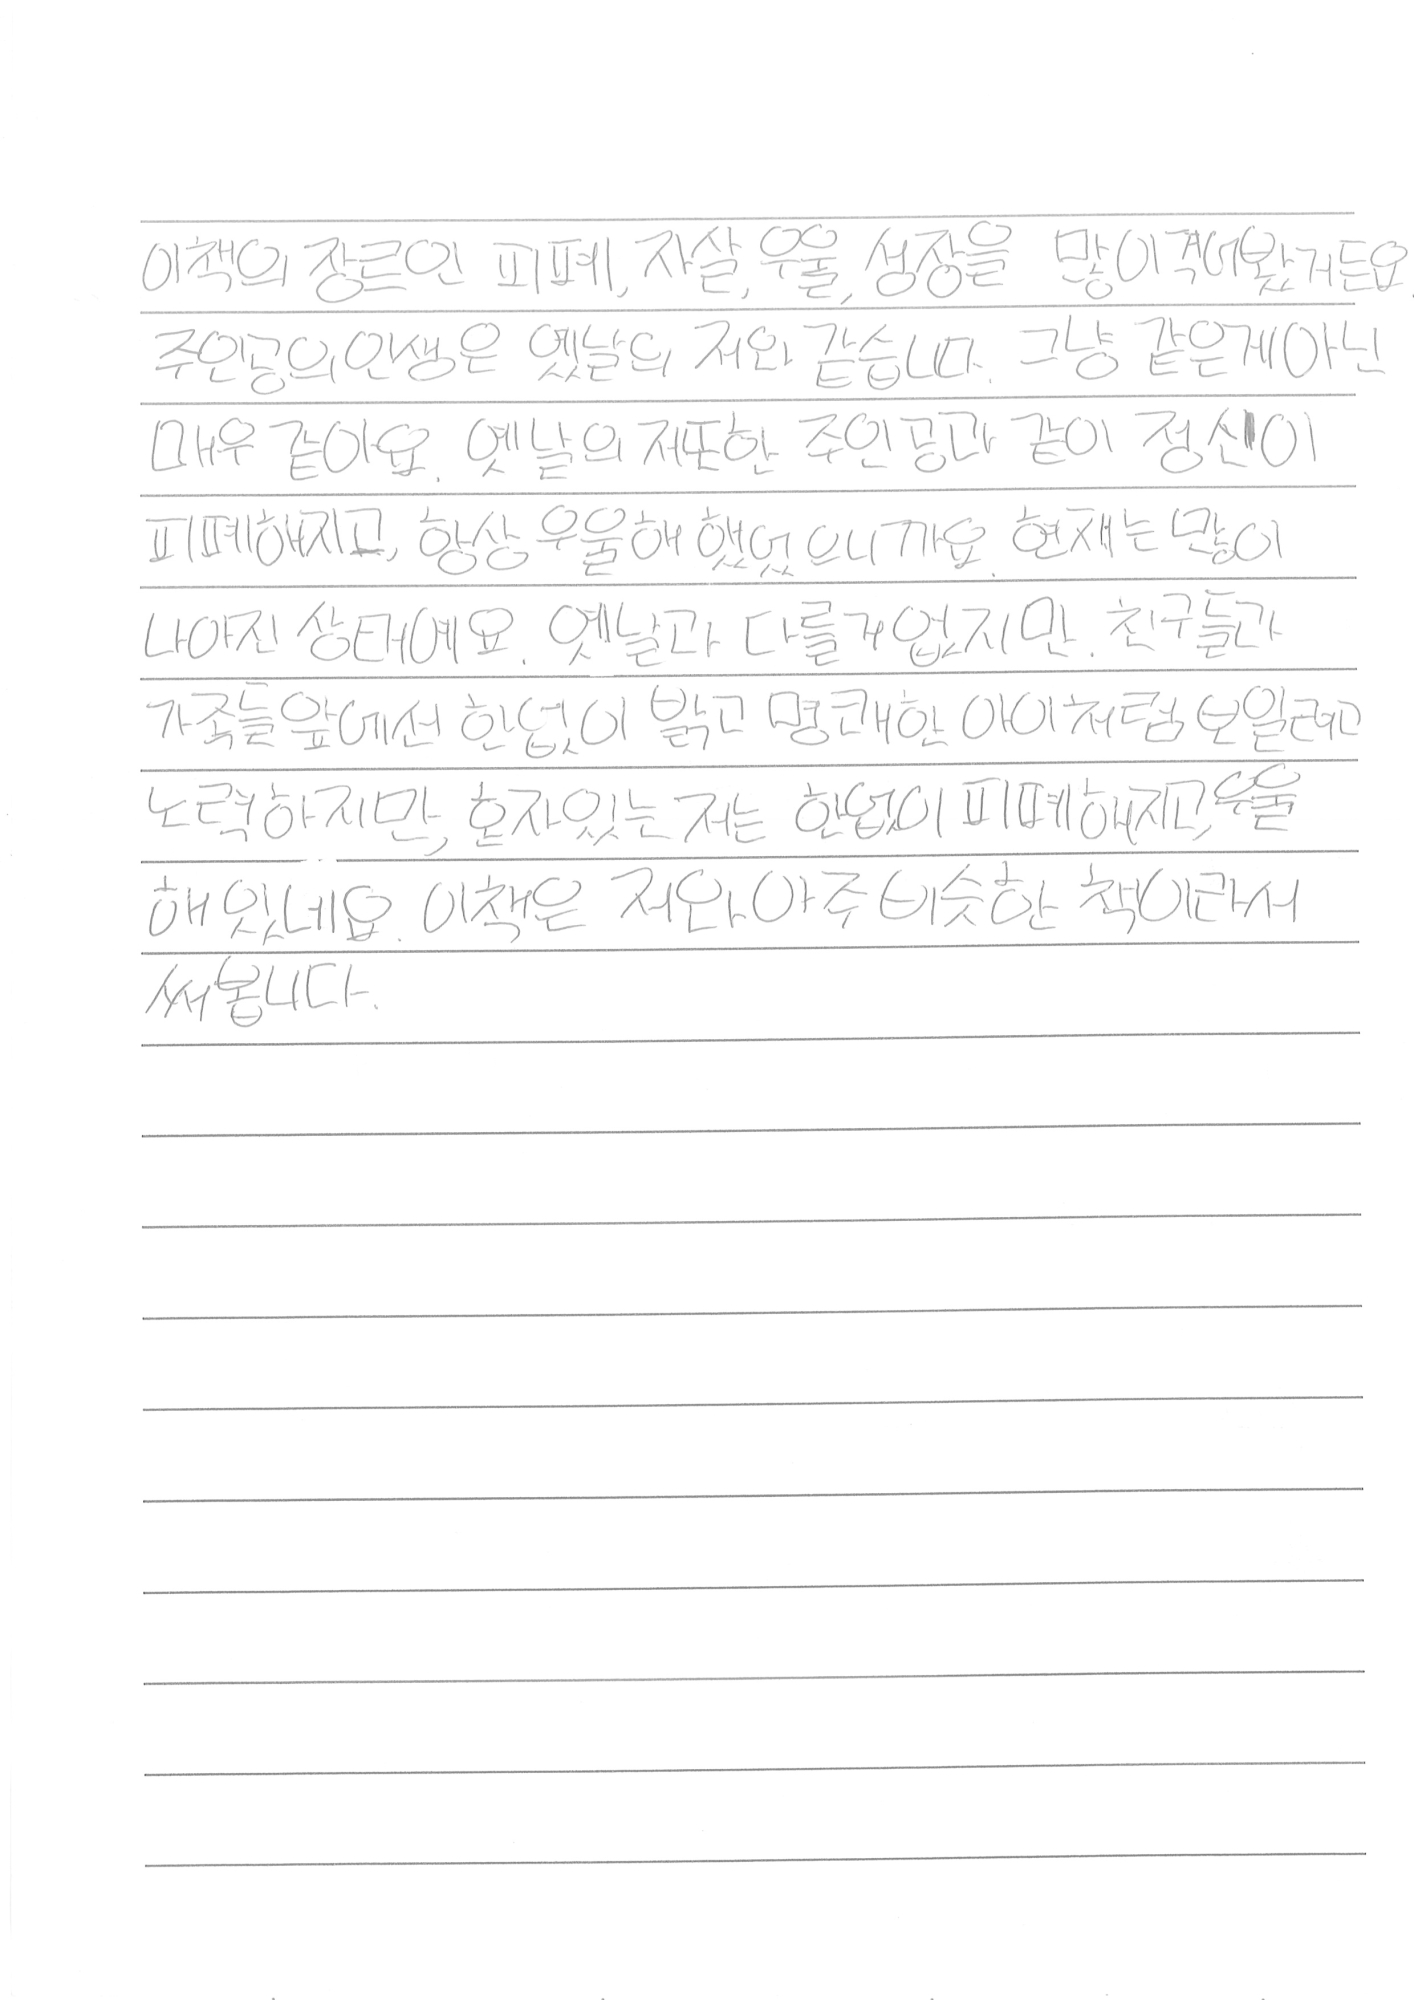 이책의 장르인 피폐, 자살, 우울, 성장을 많이겪어왔거든요.
주인공의인생은 옜날의 저와 같습니다. 그냥 같은게아닌
매우 같아요. 옛날의 저또한 주인공과 같이 정신이
피폐해지고, 항상 우울해했었으니까요. 현재는 많이
나아진 상태에요. 옛날과 다를거없지만. 친구들과
가족들앞에선 한없이 밝고 명쾌한 아이처럼 보일려고
노력하지만, 혼자있는 저는 한없이 피폐해지고, 우울
해있네요. 이책은 저와 아주 비슷한 책이라서
써봅니다.